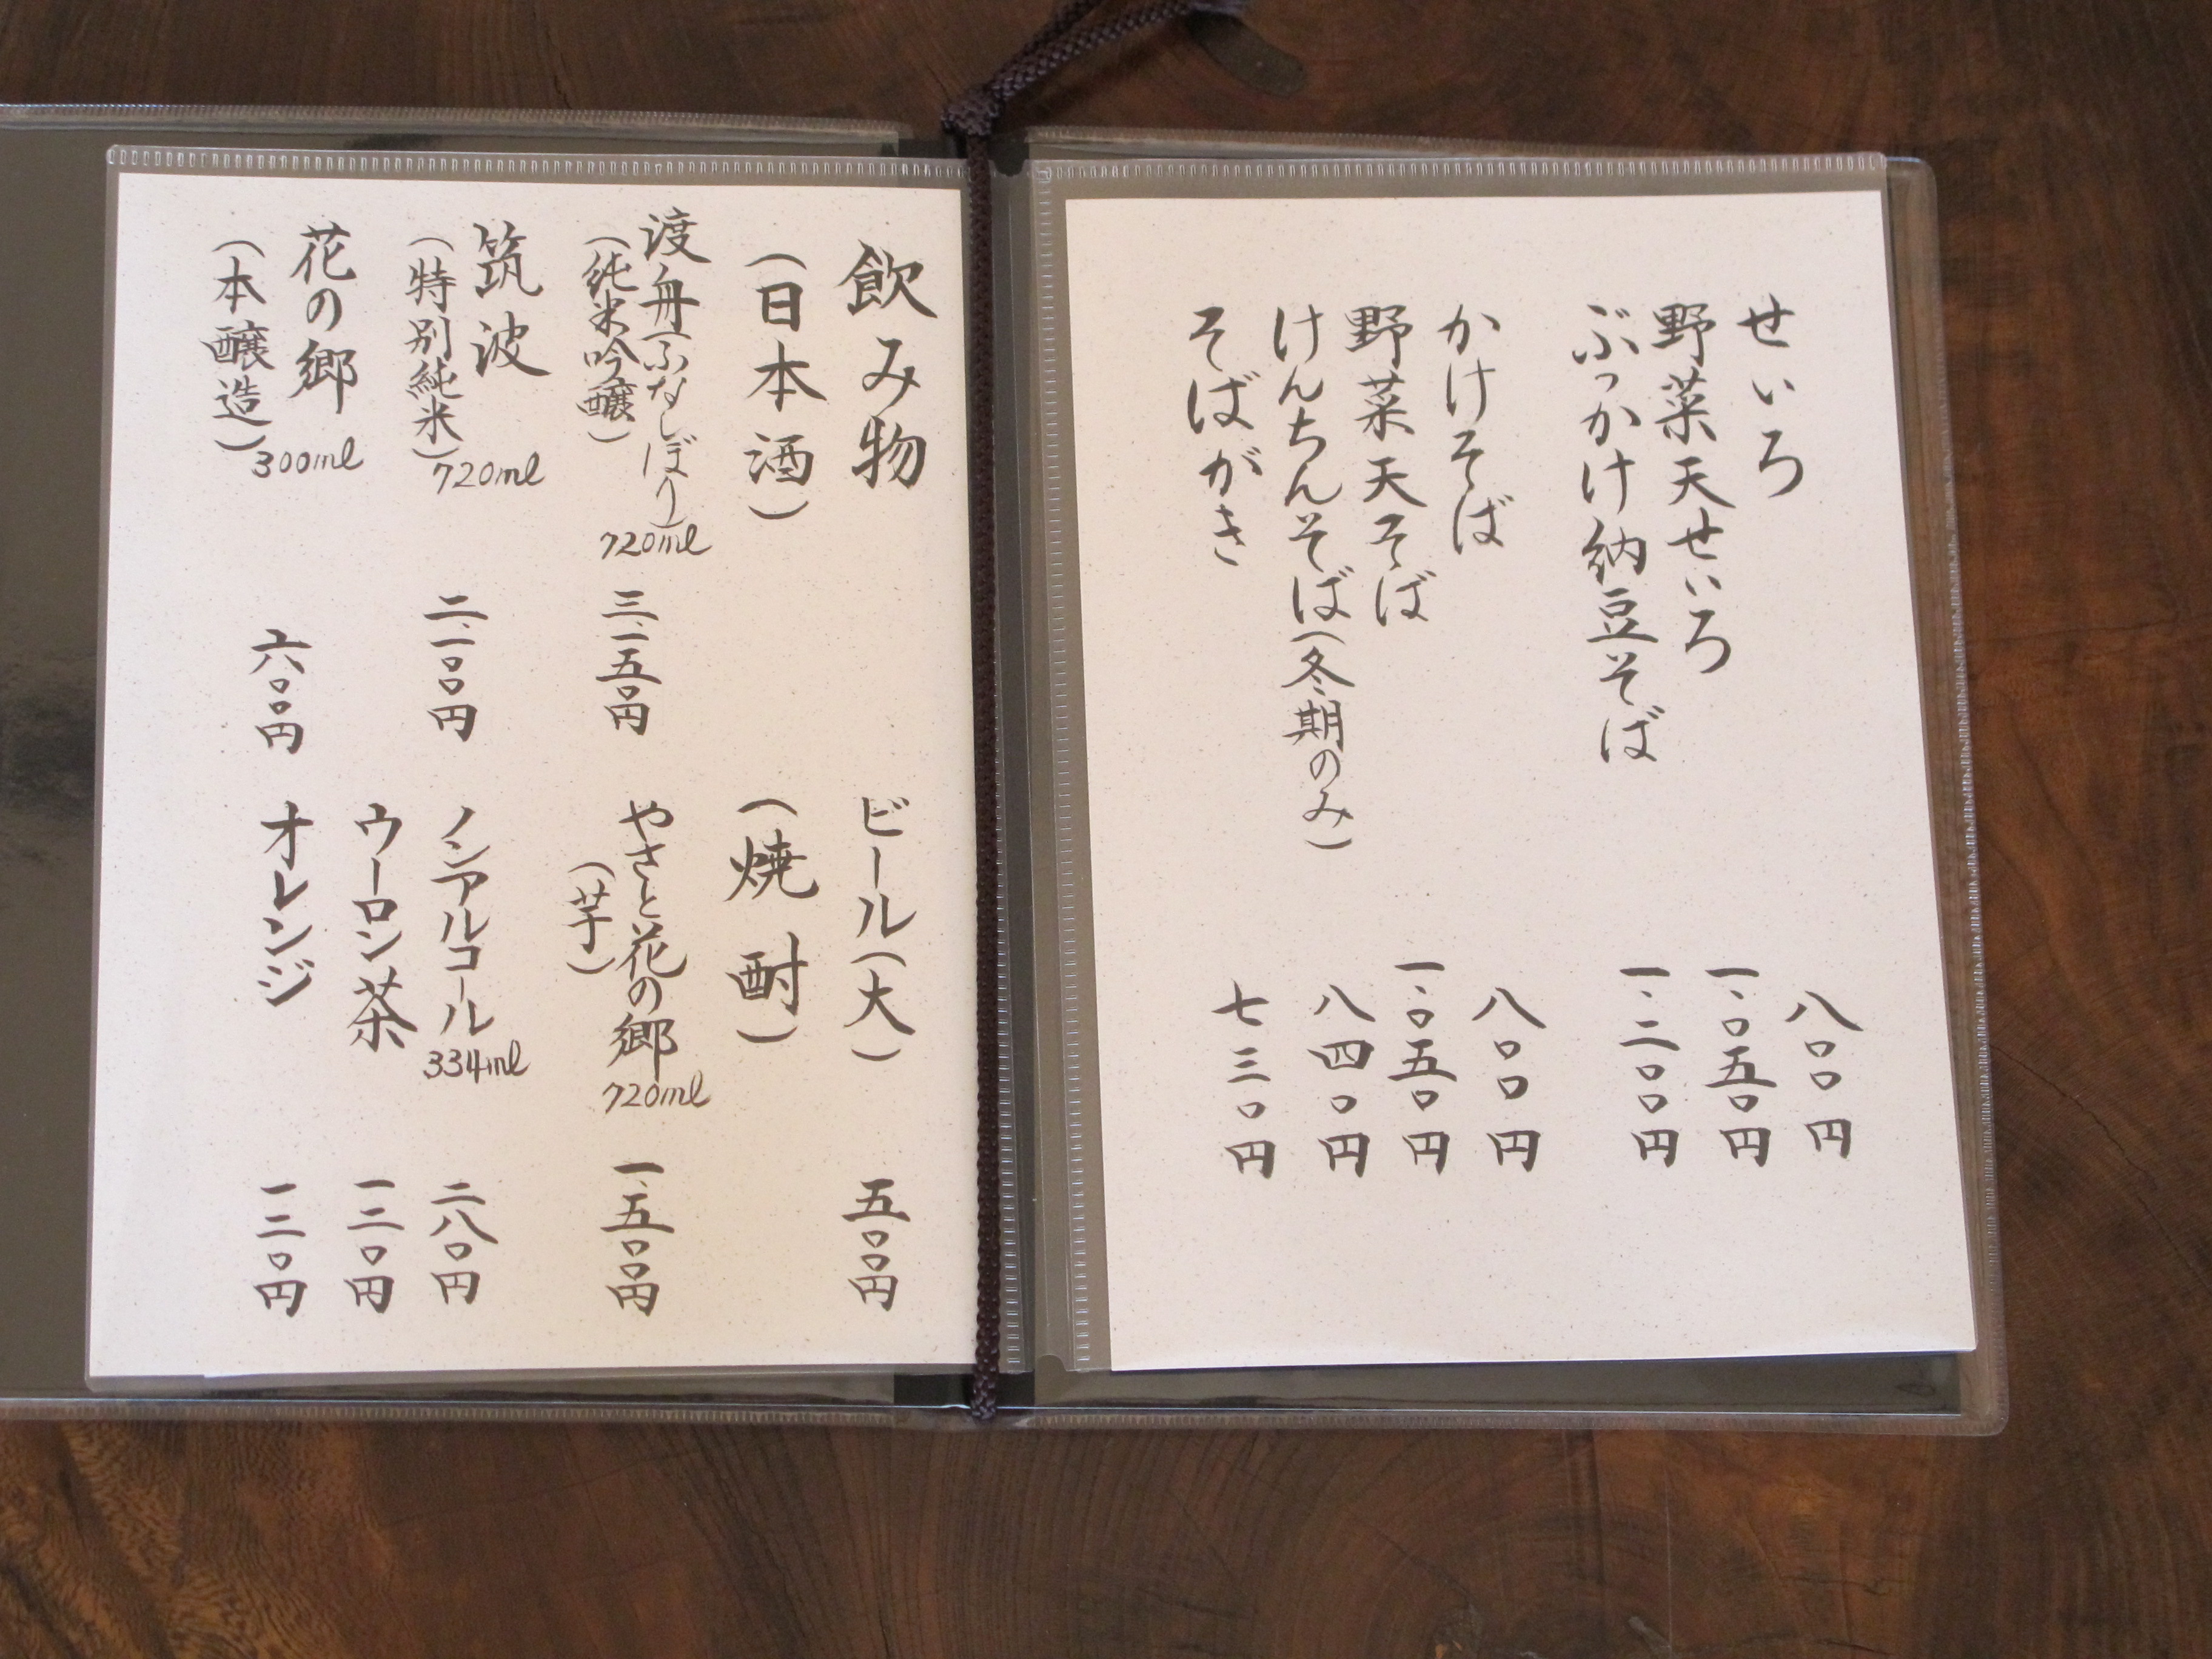 せいろ 八〇〇円
野菜天せいろ 一、〇五〇円
ぶっかけ納豆そば 一、二〇〇円
かけそば 八〇〇円
野菜天そば 一、〇五〇円
けんちんそば(冬期のみ) 八四〇円
そばがき 七三〇円
飲み物
(日本酒)
渡舟(ふなしぼり) 720ml
(純米吟醸)
三、一五〇円
筑波
(特別純米) 720ml
二、一〇〇円
花の郷
(本醸造) 300ml
六〇〇円
ビール(大) 五〇〇円
(焼酎)
やさと花の郷 720ml
(芋)
一、五〇〇円
ノンアルコール 334ml 二八〇円
ウーロン茶 一二〇円
オレンジ 一二〇円